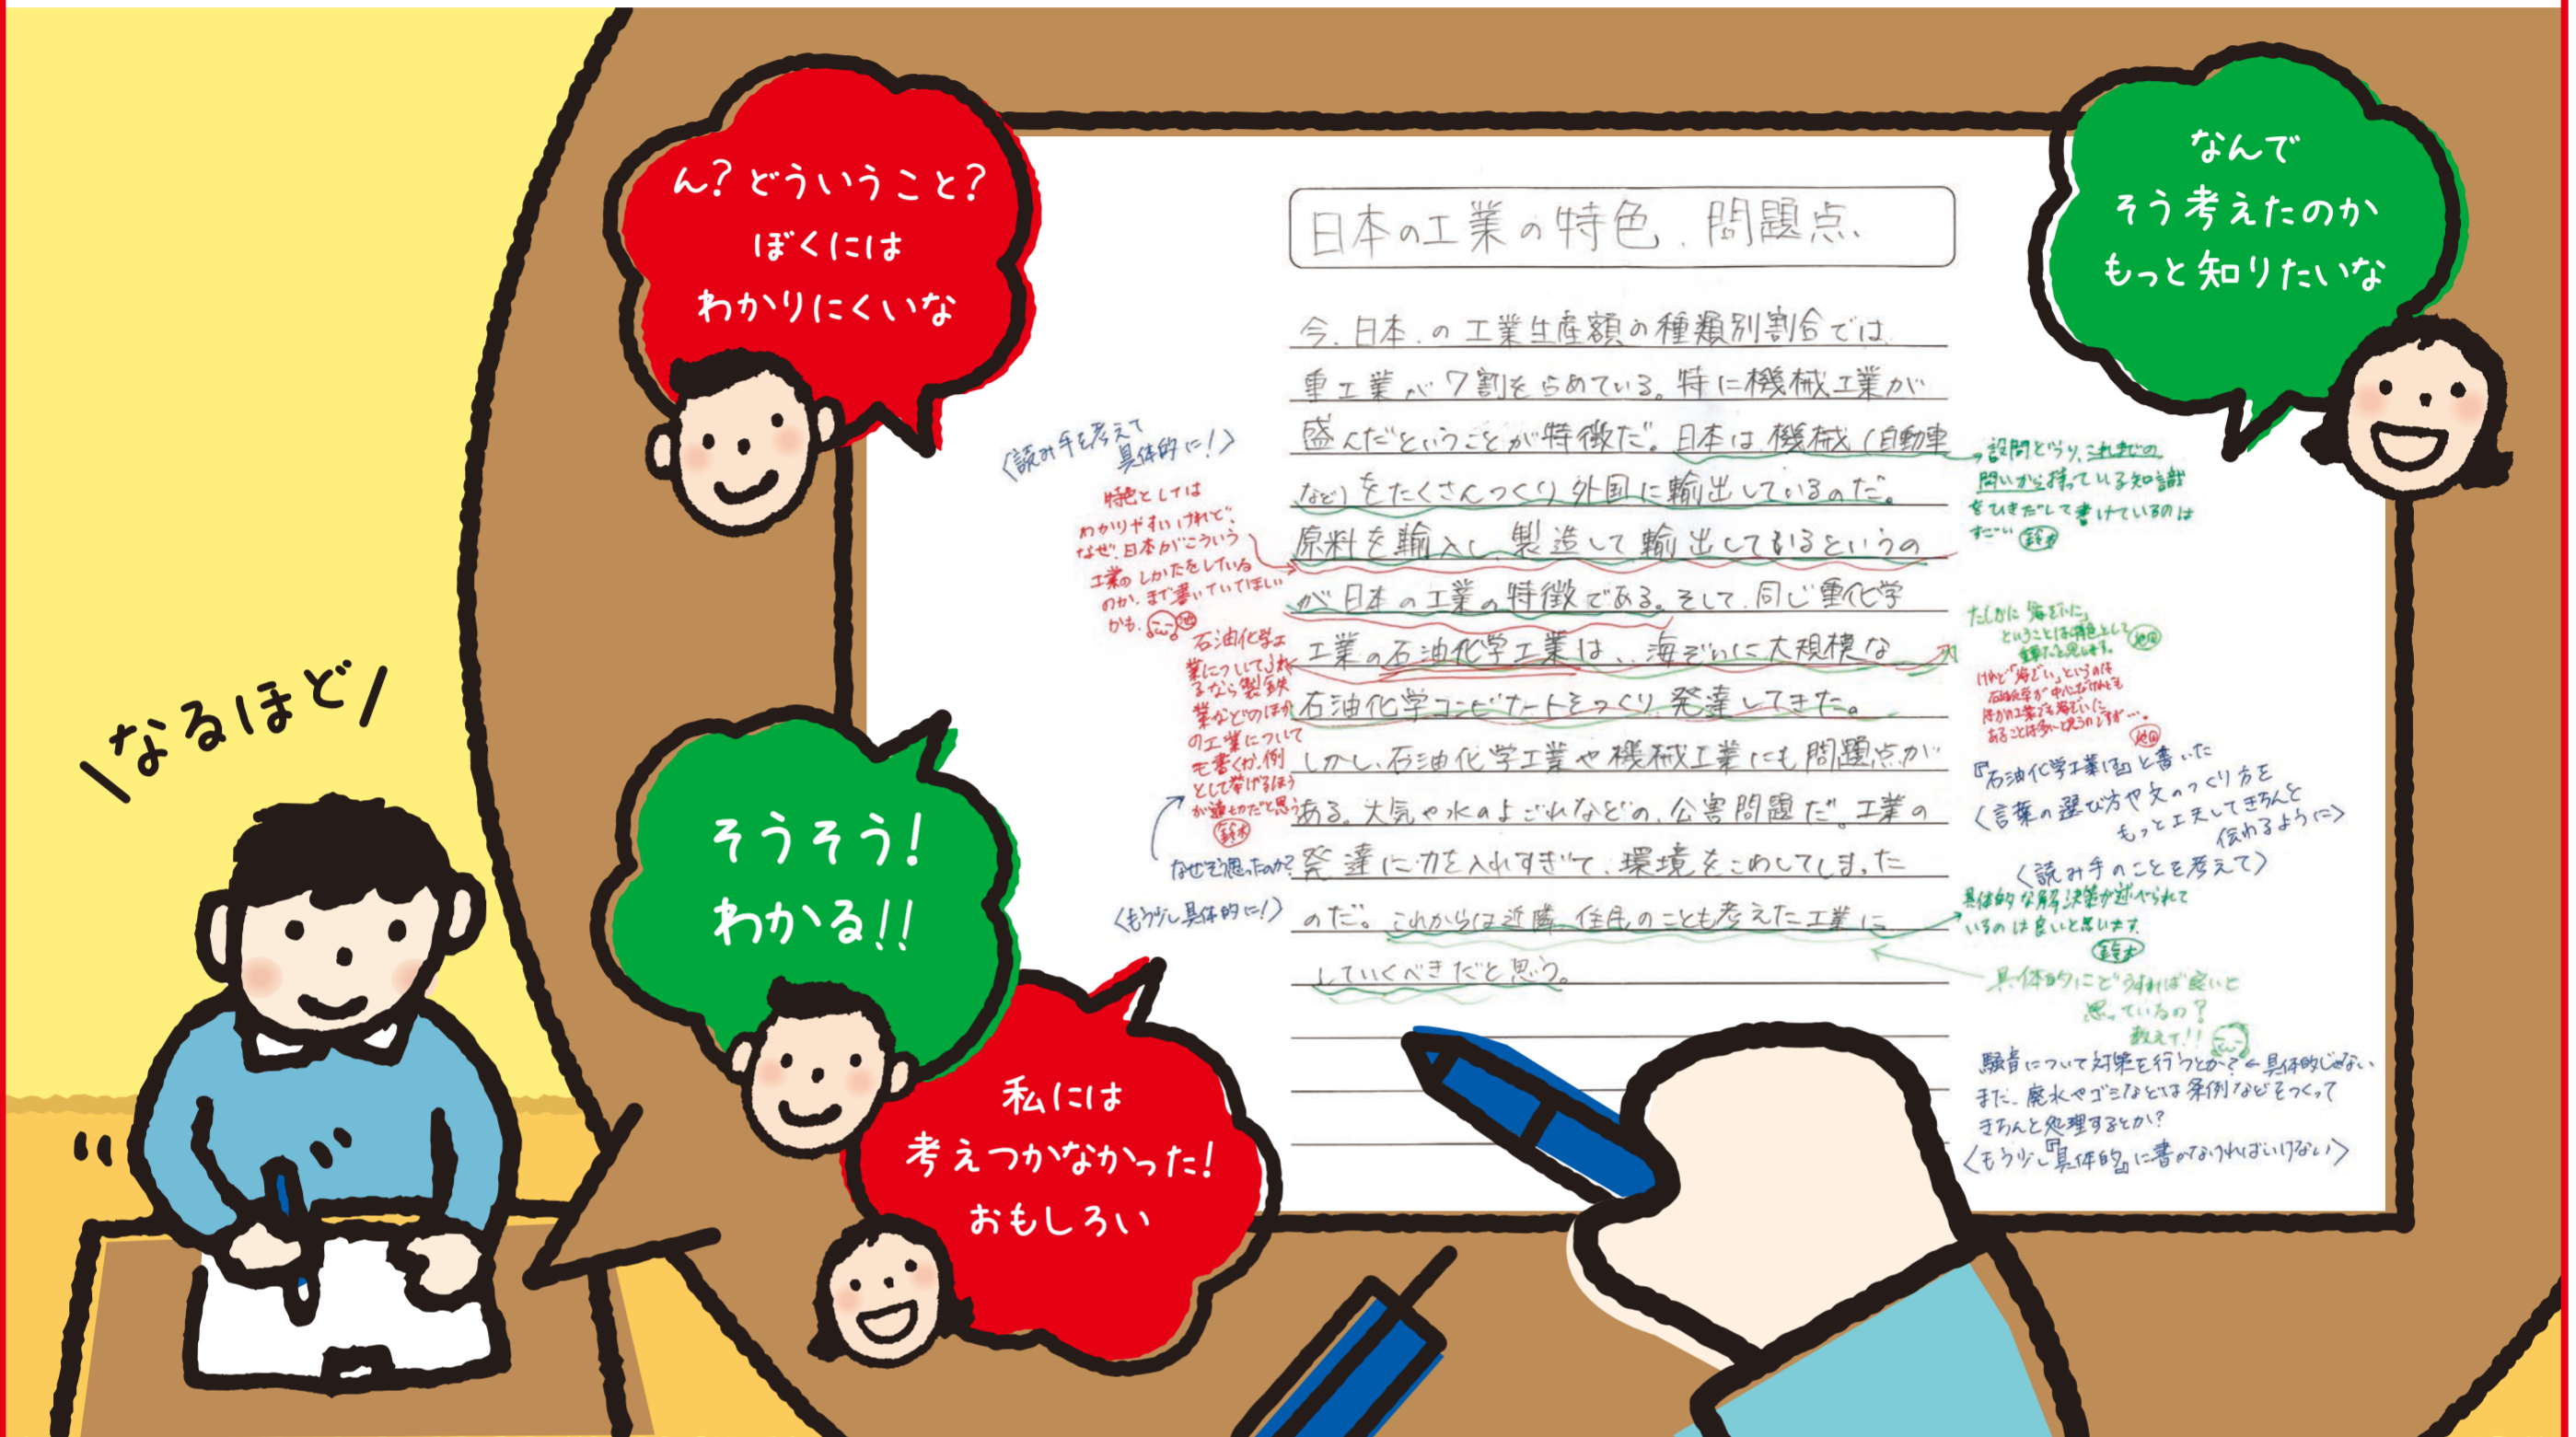 ん?どういうこと?
ぼくには
わかりにくいな
なんで
そう考えたのか
もっと知りたいな
日本の工業の特色、問題点、
今、日本、の工業生産額の種類別割合では、
重工業が7割をらめている。特に機械工業が
盛んだということが特徴だ。日本は、機械(自動車
など)をたくさんつくり、外国に輸出しているのだ。
原料を輸入し、製造して輸出しているというの
が日本の工業の特徴である。そして、同じ重化学
工業の石油化学工業は、、海ぞいに大規模な
石油化学コンビナートをつくり、発達してきた。
しかし、石油化学工業や機械工業にも問題点が
ある。大気や水のよごれなどの、公害問題だ。工業の
発達に力を入れすぎて、環境をこわしてしまった
のだ。これからは近隣住民のことも考えた工業に
していくべきだと思う。
〈読み手を考えて
具体的に!〉
特色としては
わかりやすいけれど、
なぜ、日本がこういう
工業のしかたをしている
のか、まで書いていてほしい
かも、池
石油化学工
業についてふれ
るなら製鉄
業などのほか
の工業について
も書くか、例
として挙げるほう
が適切だと思う
鈴木
なぜそう思ったのか?
〈もう少し具体的に!〉
設問どうり、これまでの
問いから持っている知識
をひきだして書けているのは
すごい 鈴木
たしかに「海ぞいに」
ということは特色として
重要だと思います。
けれど「海ぞい」というのは
石油化学が中心だけれども
ほかの工業でも海ぞいに
あることは多いと思うのですが…。
『石油化学工業は』と書いた
〈言葉の選び方や文のつくり方を
もっと工夫してきちんと
伝わるように〉
〈読み手のことを考えて〉
具体的な解決策が述べられて
いるのは良いと思います。
鈴木
具体的にどうすれば良いと
思っているの?
教えて!!
騒音について対策を行うとか?←具体的じゃない
また、廃水やゴミなどは条例などをつくって
きちんと処理するとか?
〈もう少し『具体的』に書かなければいけない〉
なるほど
そうそう!
わかる!!
私には
考えつかなかった!
おもしろい